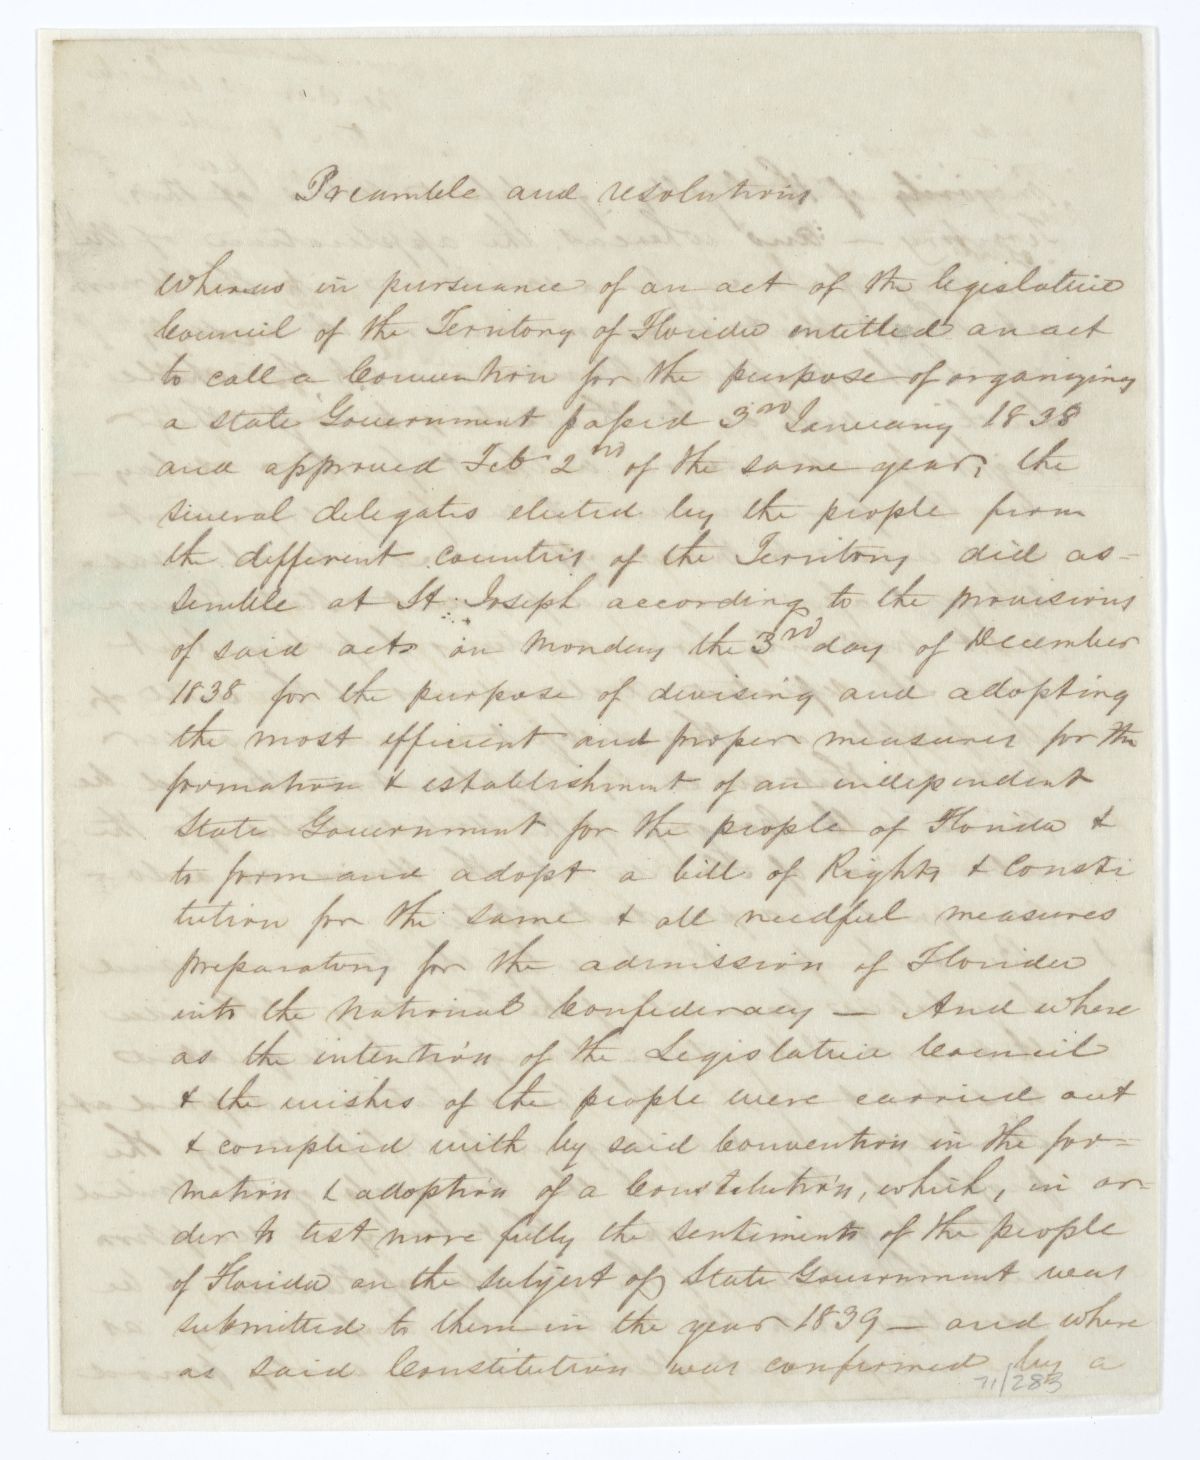 Preamble and resolutions
Whereas in pursuance of an act of the legislative
Council of the Territory of Florida entitled an act
to call a Convention for the purpose of organizing
a state Government passed 3rd January 1838
and approved Feb 2nd of the same year; the
several delegates elected by the people from
the different counties of the Territory did as-
semble at St. Joseph according to the provisions
of said act on Monday the 3rd day of December
1838 for the purpose of devising and adopting
the most efficient and proper measures for the
formation & establishment of an independent
State Government for the people of Florida &
to form and adopt a bill of Rights & Consti
tution for the same & all needful measures
preparatory for the admission of Florida
into the National Confederacy — And where
as the intention of the Legislative Council
& the wishes of the people were carried out
& complied with by said Convention in the for=
mation & adoption of a Constitution, which, in or=
der to test more fully the sentiments of the people
of Florida on the subject of State Government was
submitted to them in the year 1839 — and where
as said Constitution was confirmed by a
71/283